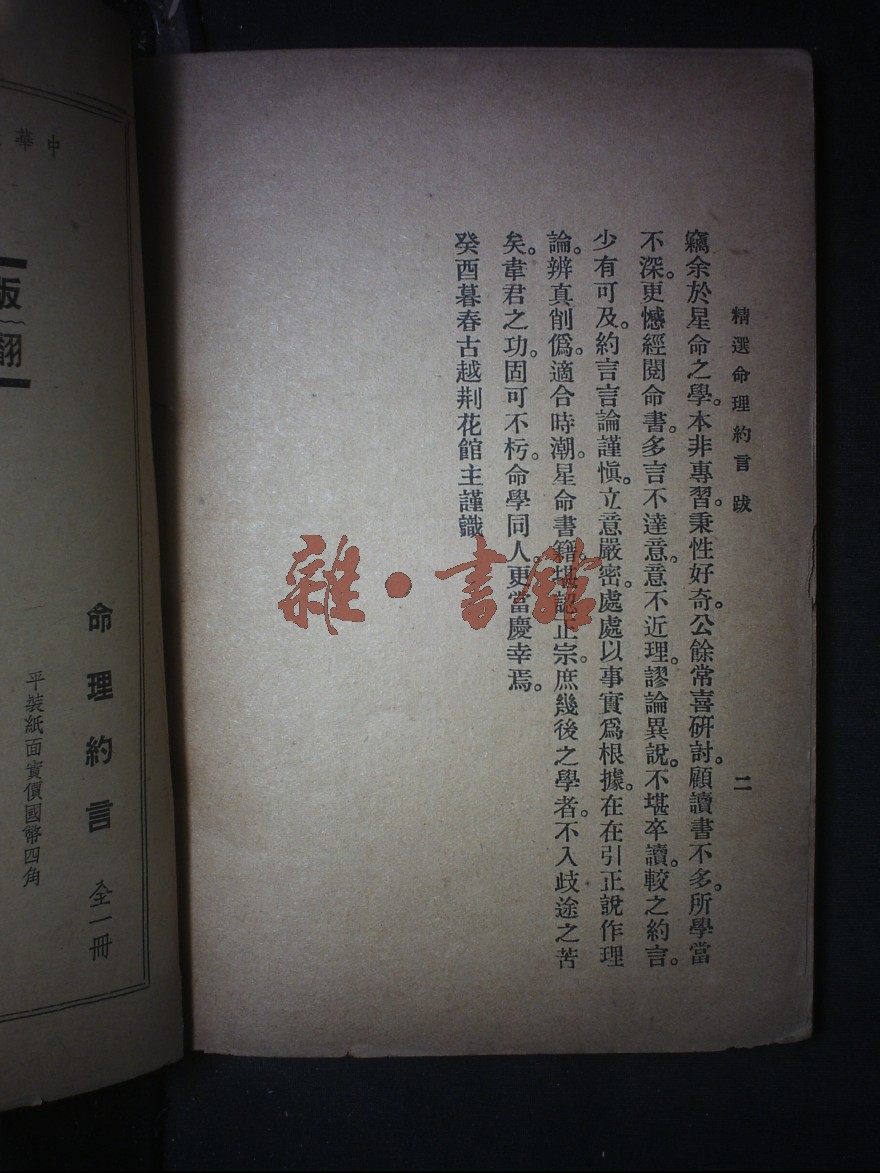 精選命理約言 跋
二
竊余於星命之學。本非專習。秉性好奇。公餘常喜研討。顧讀書不多。所學當
不深。更憾經閱命書。多言不達意。意不近理。謬論異說。不堪卒讀。較之約言。
少有可及。約言言論謹愼。立意嚴密。處處以事實爲根據。在在引正說作理
論。辨真削僞。適合時潮。星命書籍。堪認正宗。庶幾後之學者。不入歧途之苦
矣。韋君之功。固可不朽。命學同人。更當慶幸焉。
癸酉暮春古越荆花館主謹識
雜·書館
中華
版
翻
命理約言 全一冊
平裝紙面實價國幣四角